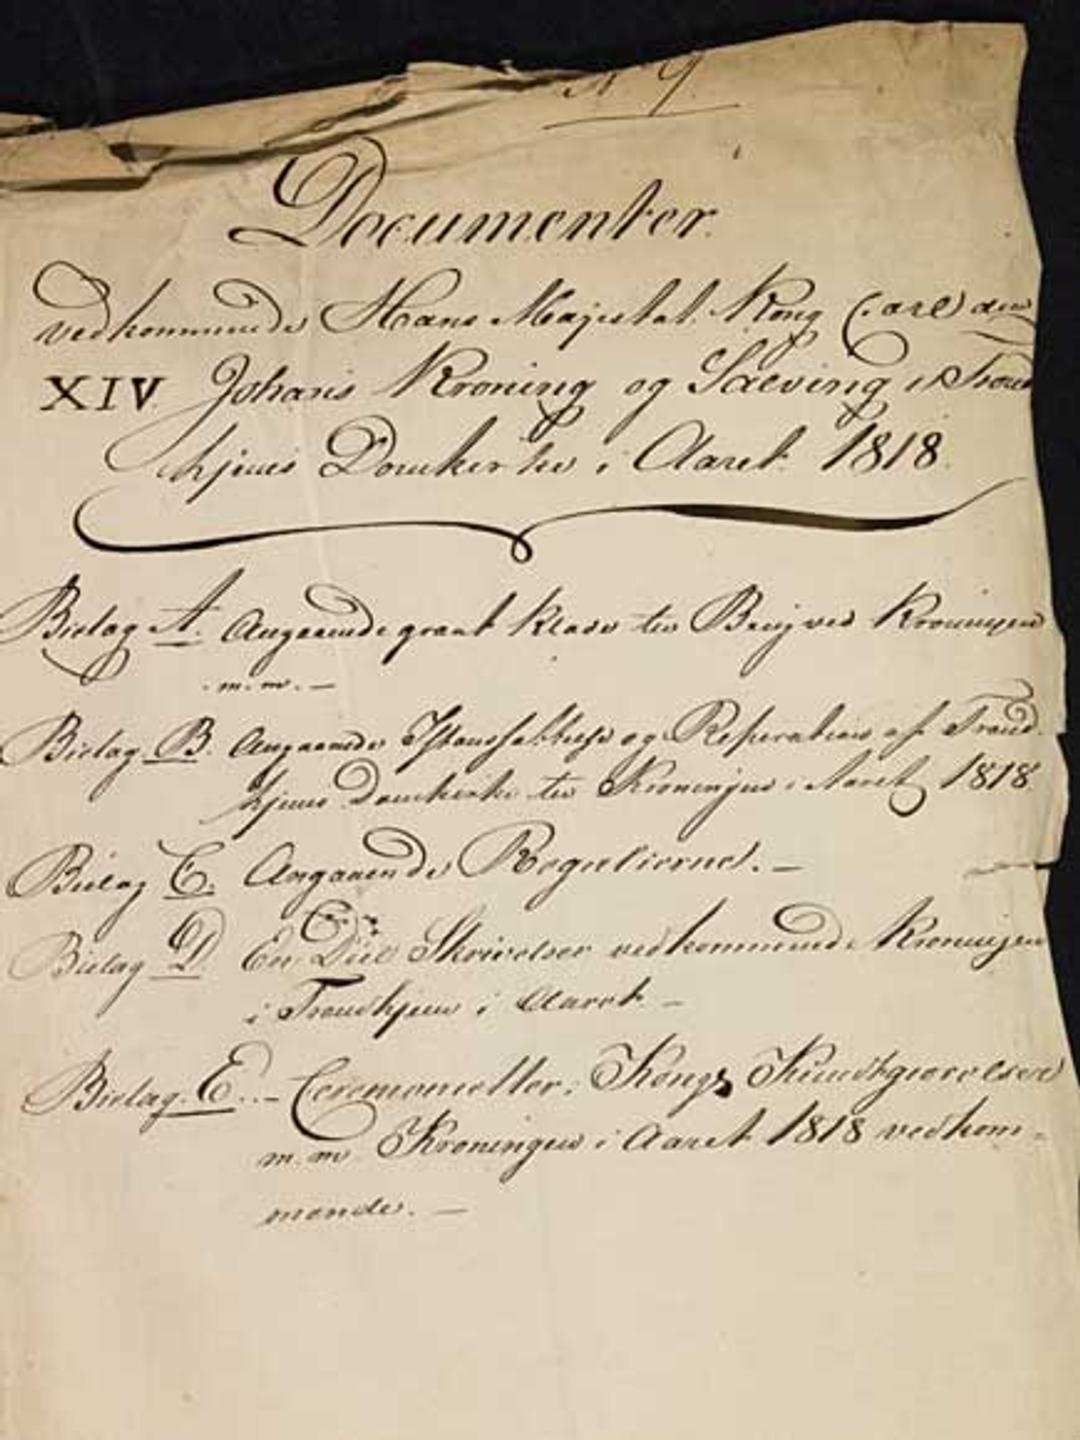 N 9.
Documenter
vedkommende Hans Majestæt Kong Carl den
XIV Johans Kroning og Salving i Trond
hjems Domkirke i Aaret 1818.
Bielag A. Angaaende graat Klæde til Brug ved Kroningen
m. m. —
Bielag B. Angaaende Istandsættelse og Reperation af Trond
hjems Domkirke til Kroningen i Aaret 1818
Bielag C. Angaaende Regalierne. —
Bielag D En Deel Skrivelser vedkommende Kroningen
i Trondhjem i Aaret —
Bielag. E.. — Ceremonieller, Kongs Kundgiørelser
m. m. Kroningen i Aaret 1818 vedkom-
mende. —